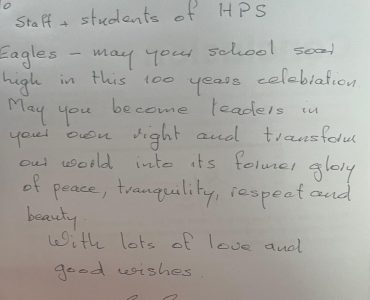 To
Staff + students of HPS
Eagles - may your school soar
high in this 100 years celebration
May you become leaders in
your own right and transform
our world into its former glory
of peace, tranquility, respect and
beauty.
With lots of love and
good wishes.